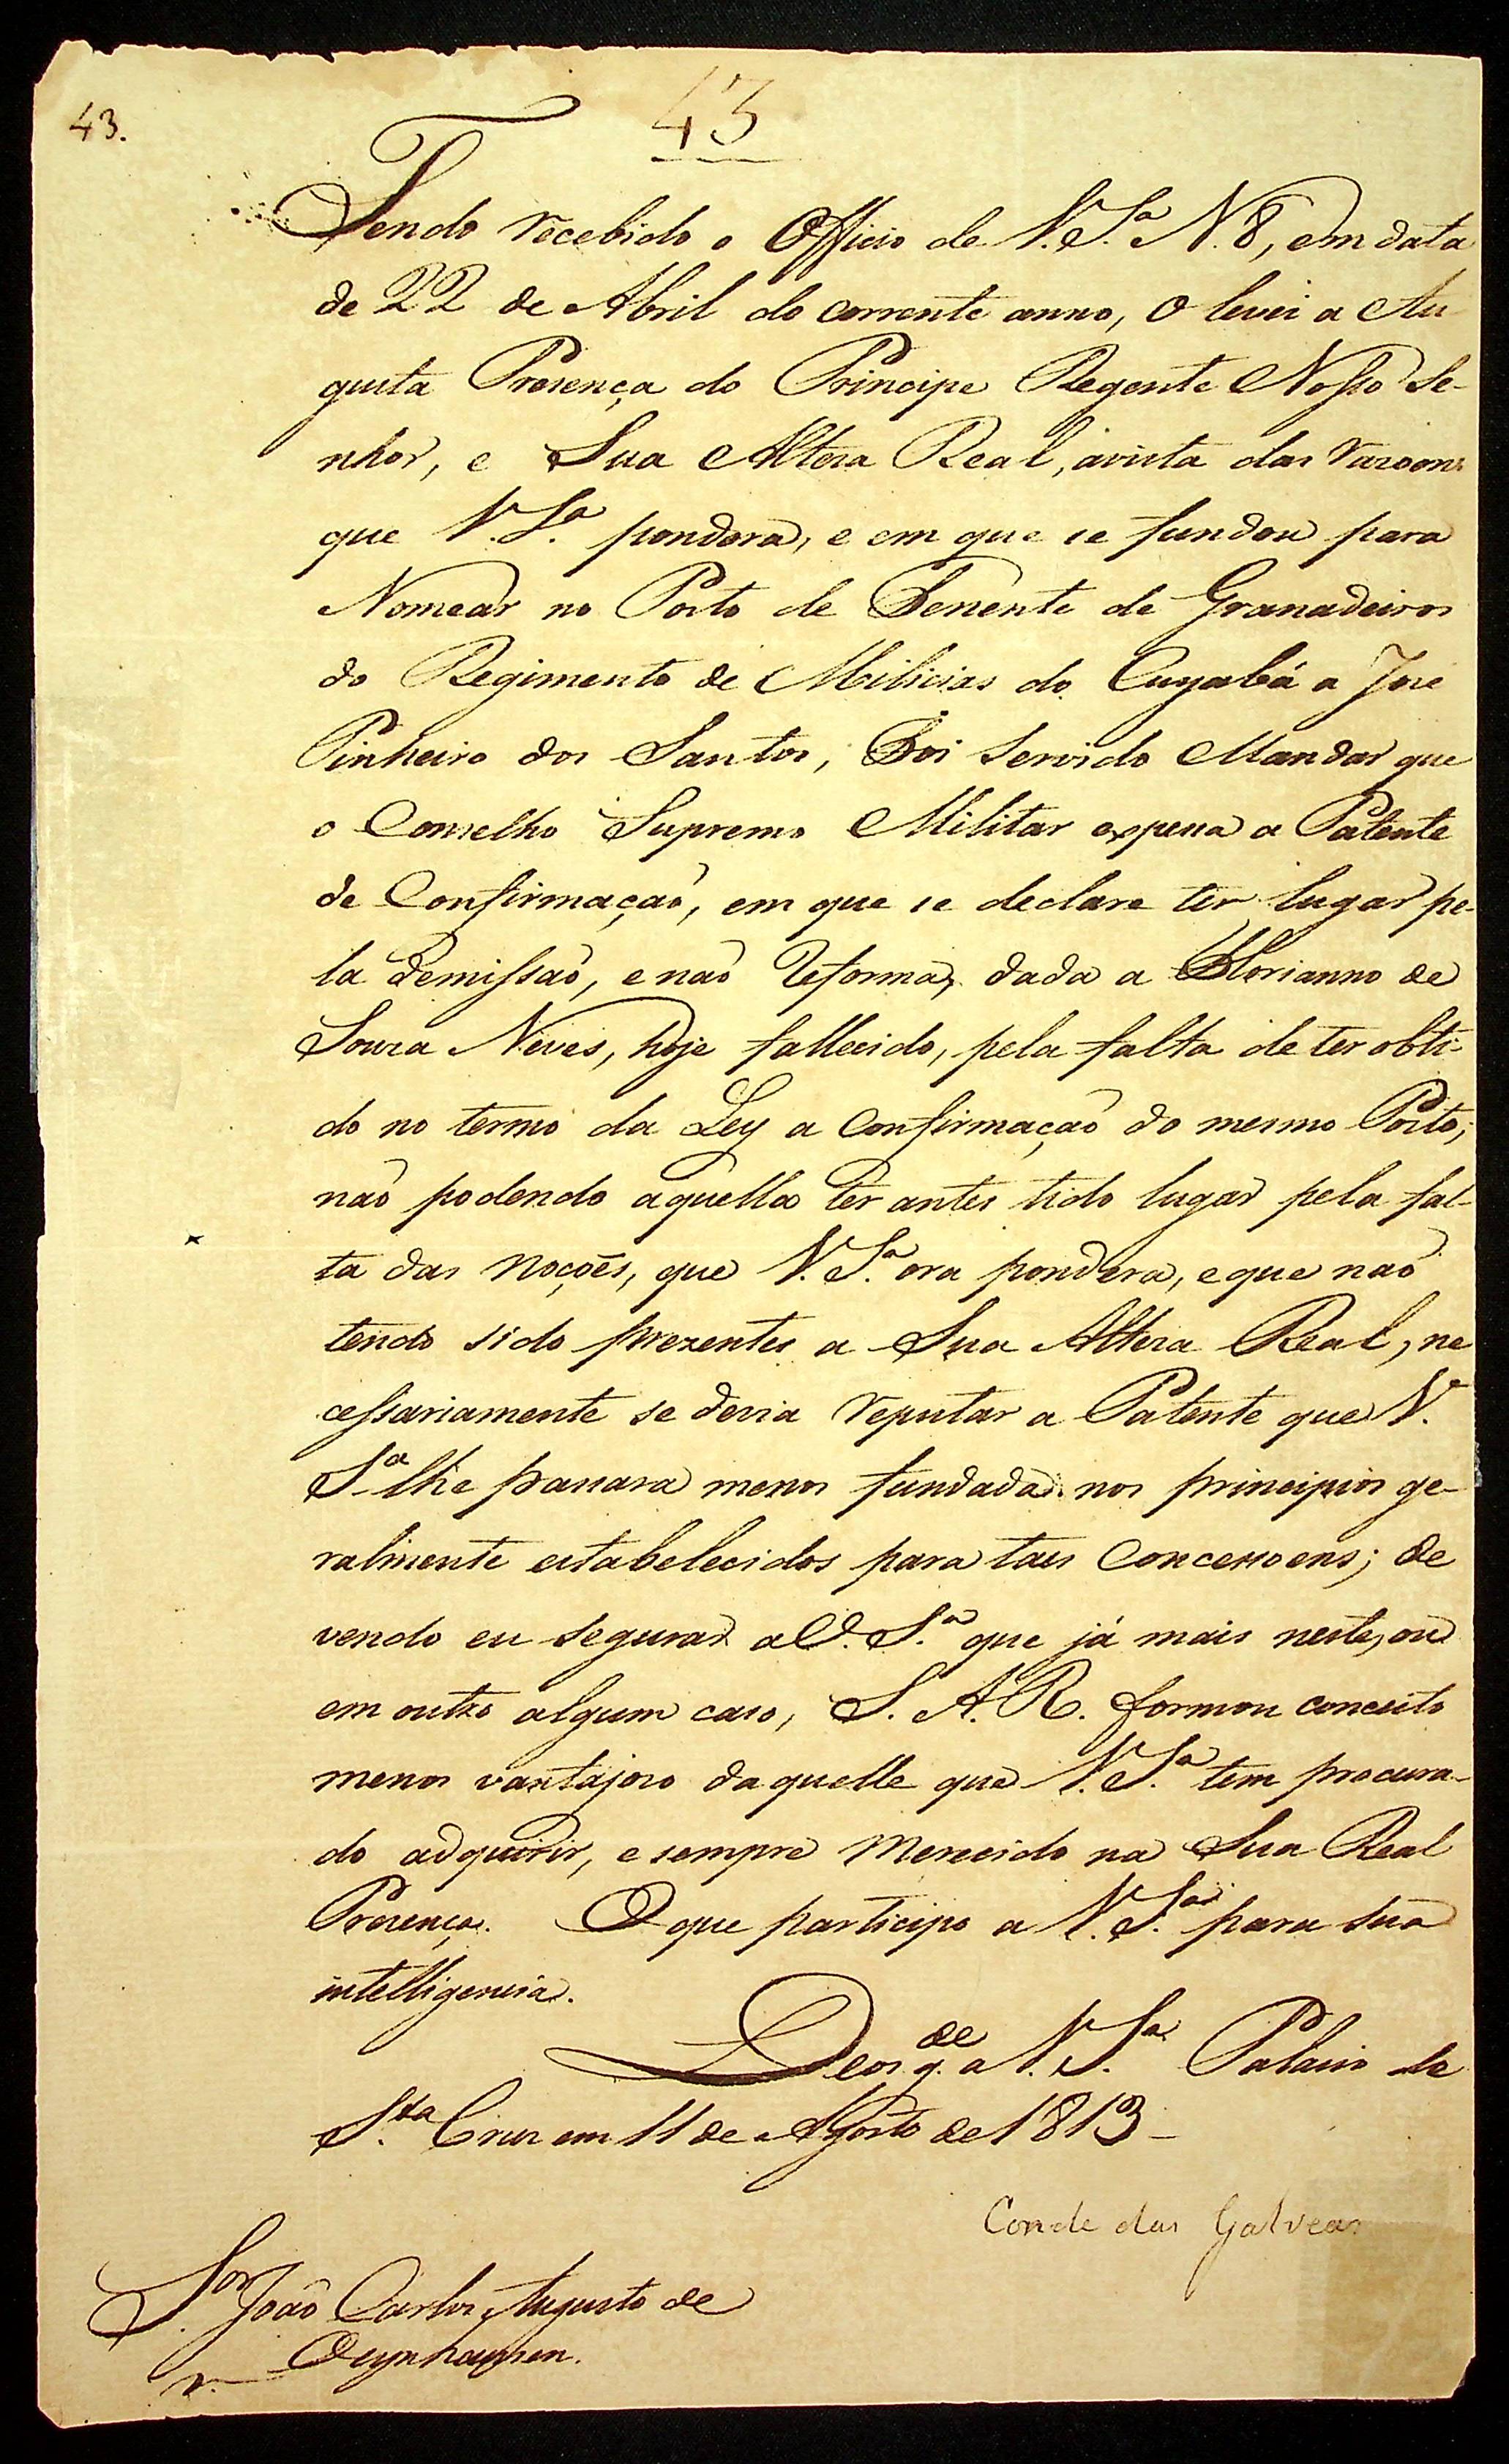 43.
43
Tendo recebido o Officio de V. S.ª N. 8, em data
de 22 de Abril do corrente anno, o levei a Au
gusta Presença do Principe Regente Nosso Se-
nhor, e Sua Alteza Real, avista das razoens
que V. S.ª pondera, e em que se fundou para
Nomear no Posto de Tenente de Granadeiros
do Regimento de Milicias do Cuyabá a Jose
Pinheiro dos Santos, Foi Servido Mandar que
o Conselho Supremo Militar expessa a Patente
de Confirmaçaõ, em que se declare ter lugar pe-
la demissaõ, e naõ reforma, dada a Florianno de
Souza Neves, hoje fallecido, pela falta de ter obti-
do no termo da Ley a Confirmaçaõ do mesmo Posto;
naõ podendo aquella ter antes tido lugar pela fal-
ta das noçoẽs, que V. S.ª ora pondera, e que naõ
tendo sido prezentes a Sua Alteza Real, ne
cessariamente se devia reputar a Patente que V.
S.ª lhe passara menos fundada nos principios ge-
ralmente estabelecidos para taes Concessoens; de
vendo eu segurar a V. S.ª que já mais neste, ou
em outro algum caso, S. A. R. formou conceito
menos vantajoso daquelle que V. S.ª tem procura-
do adquirir, e sempre merecido na Sua Real
Presença. O que participo a V. S.ª para sua
intelligencia.
Deos g.de a V. S.ª Palacio de
S.ta Cruz em 11 de Agosto de 1813-
Conde das Galveas
S.or Joaõ Carlos Augusto de
Oeynhausen.